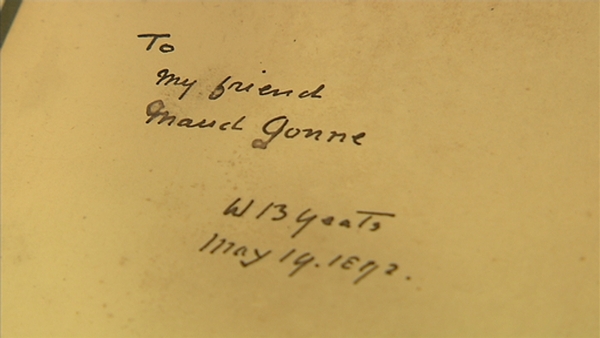 To
my friend
Maud Gonne
W B Yeats
May 19. 1892.